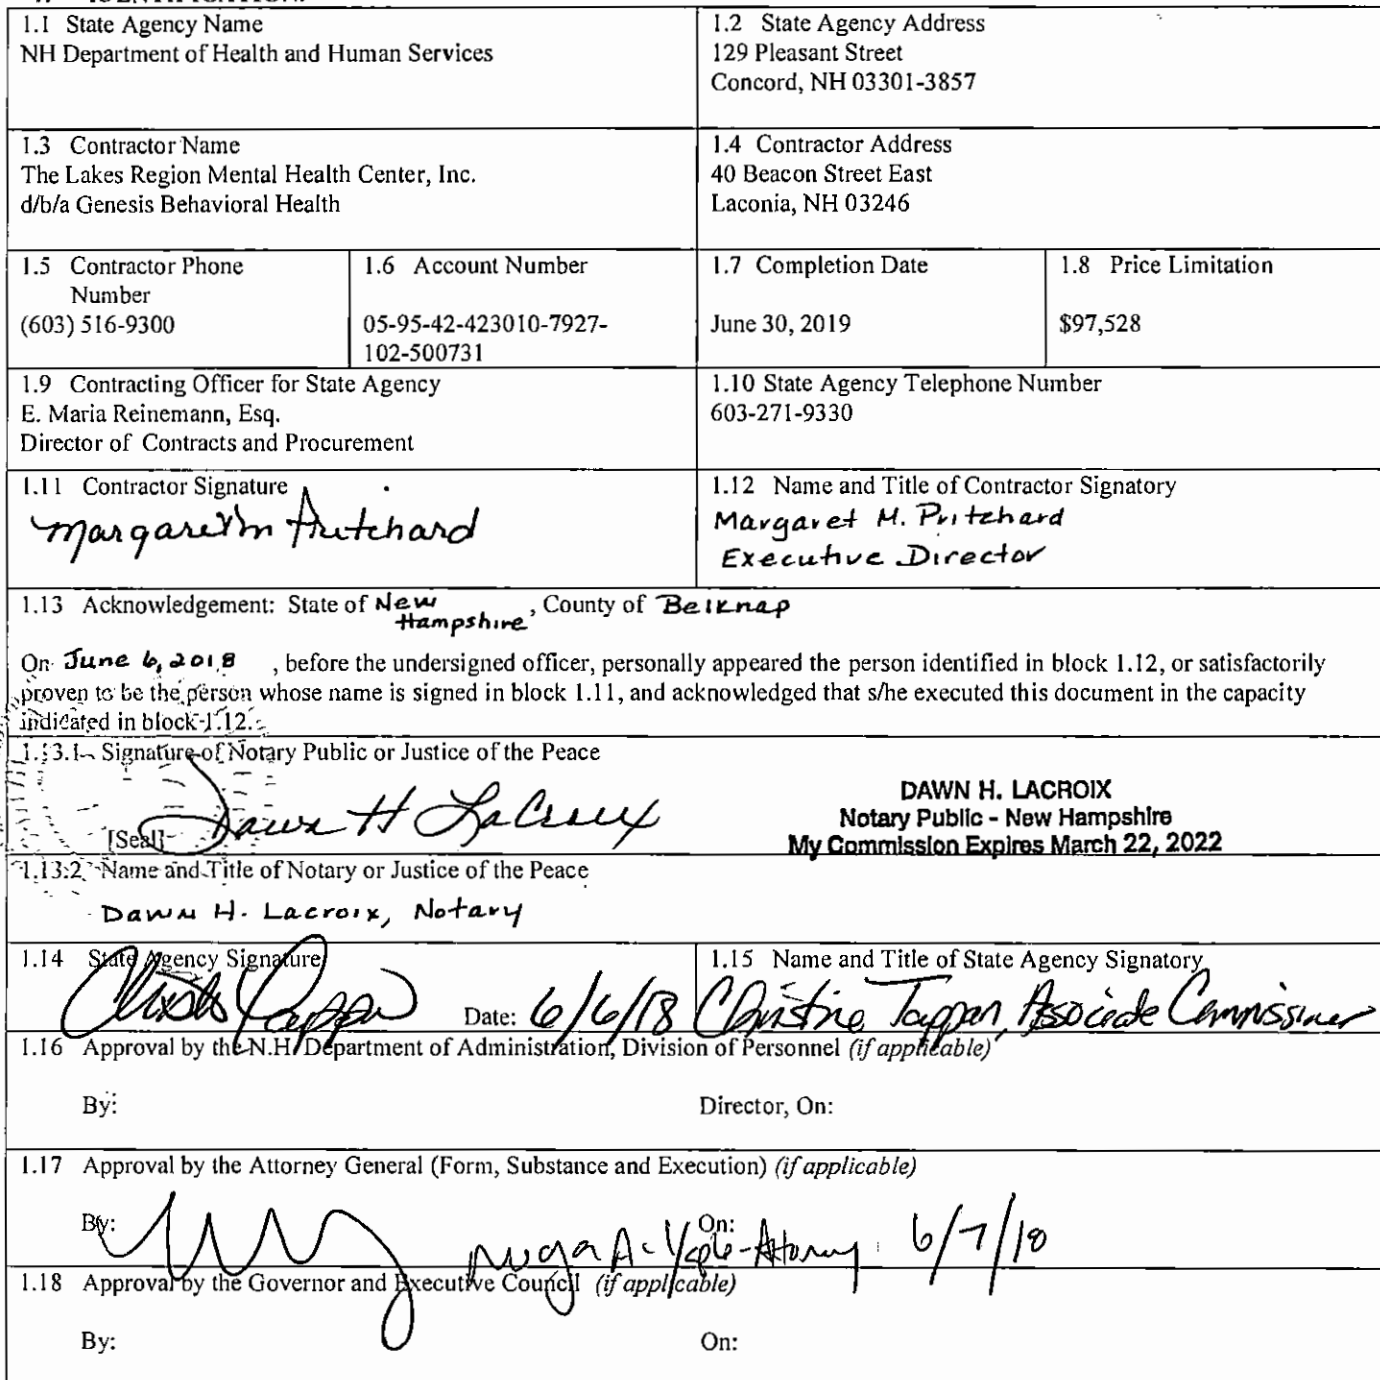 1.1 State Agency Name
NH Department of Health and Human Services
1.2 State Agency Address
129 Pleasant Street
Concord, NH 03301-3857
1.3 Contractor Name
The Lakes Region Mental Health Center, Inc.
d/b/a Genesis Behavioral Health
1.4 Contractor Address
40 Beacon Street East
Laconia, NH 03246
1.5 Contractor Phone
Number
(603) 516-9300
1.6 Account Number
05-95-42-423010-7927-
102-500731
1.7 Completion Date
June 30, 2019
1.8 Price Limitation
$97,528
1.9 Contracting Officer for State Agency
E. Maria Reinemann, Esq.
Director of Contracts and Procurement
1.10 State Agency Telephone Number
603-271-9330
1.11 Contractor Signature
Margaret M Pritchard
1.12 Name and Title of Contractor Signatory
Margaret M. Pritchard
Executive Director
1.13 Acknowledgement: State of New Hampshire, County of Belknap
On June 6, 2018 , before the undersigned officer, personally appeared the person identified in block 1.12, or satisfactorily
proven to be the person whose name is signed in block 1.11, and acknowledged that s/he executed this document in the capacity
indicated in block 1.12.
1.13.1 Signature of Notary Public or Justice of the Peace
[Seal] Dawn H LaCroix
DAWN H. LACROIX
Notary Public - New Hampshire
My Commission Expires March 22, 2022
1.13.2 Name and Title of Notary or Justice of the Peace
Dawn H. Lacroix, Notary
1.14 State Agency Signature
Date: 6/6/18
1.15 Name and Title of State Agency Signatory
Christine Tappan, Associate Commissioner
1.16 Approval by the N.H. Department of Administration, Division of Personnel (if applicable)
By: Director, On:
1.17 Approval by the Attorney General (Form, Substance and Execution) (if applicable)
By: On: A. Attorney 6/7/18
1.18 Approval by the Governor and Executive Council (if applicable)
By: On: